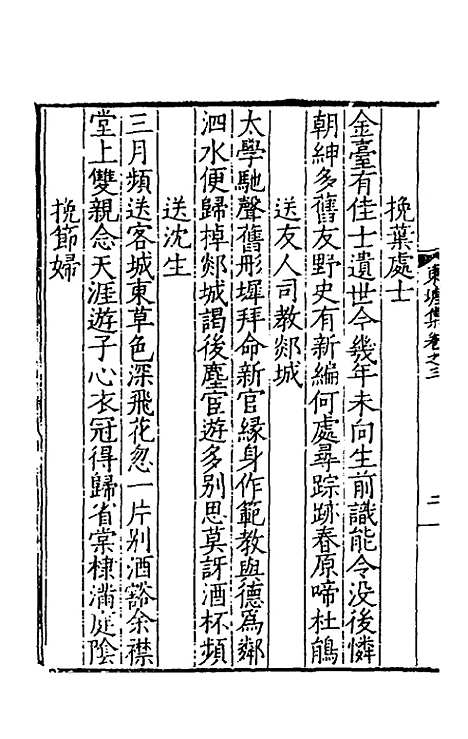 東塘集卷之三
二
挽葉處士
金臺有佳士遺世今幾年未向生前識能令没後憐
朝紳多舊友野史有新編何處尋踪跡春原啼杜鵑
送友人司教郯城
太學馳聲舊彤墀拜命新官緣身作範教與德爲鄰
泗水便歸棹郯城謁後塵宦遊多别思莫訝酒杯頻
送沈生
三月頻送客城東草色深飛花忽一片别酒豁余襟
堂上雙親念天涯遊子心衣冠得歸省棠棣滿庭陰
挽節婦